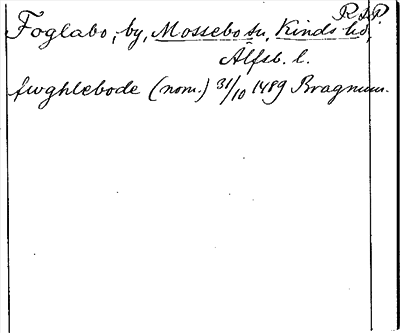 R.I.P.
Foglabo, by, Mossebo sn, Kinds hd,
Älfsb. l.
fwghlebode (nom.) 31/10 1489 Bragnum.